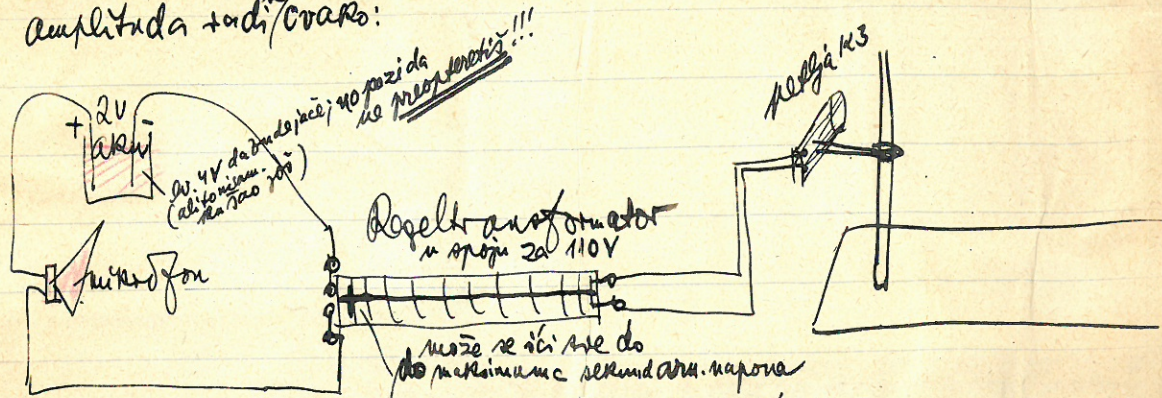 amplituda radi ovako:
+ 2V
aku
ev. 4V da bude jače; no pazi da
ne preopteretiš!!!
(ali to nisam
kušao još)
mikrofon
Regeltransformator
u spoju za 110V
petlja K3
može se ići sve do
do maksimuma sekundarn. napona